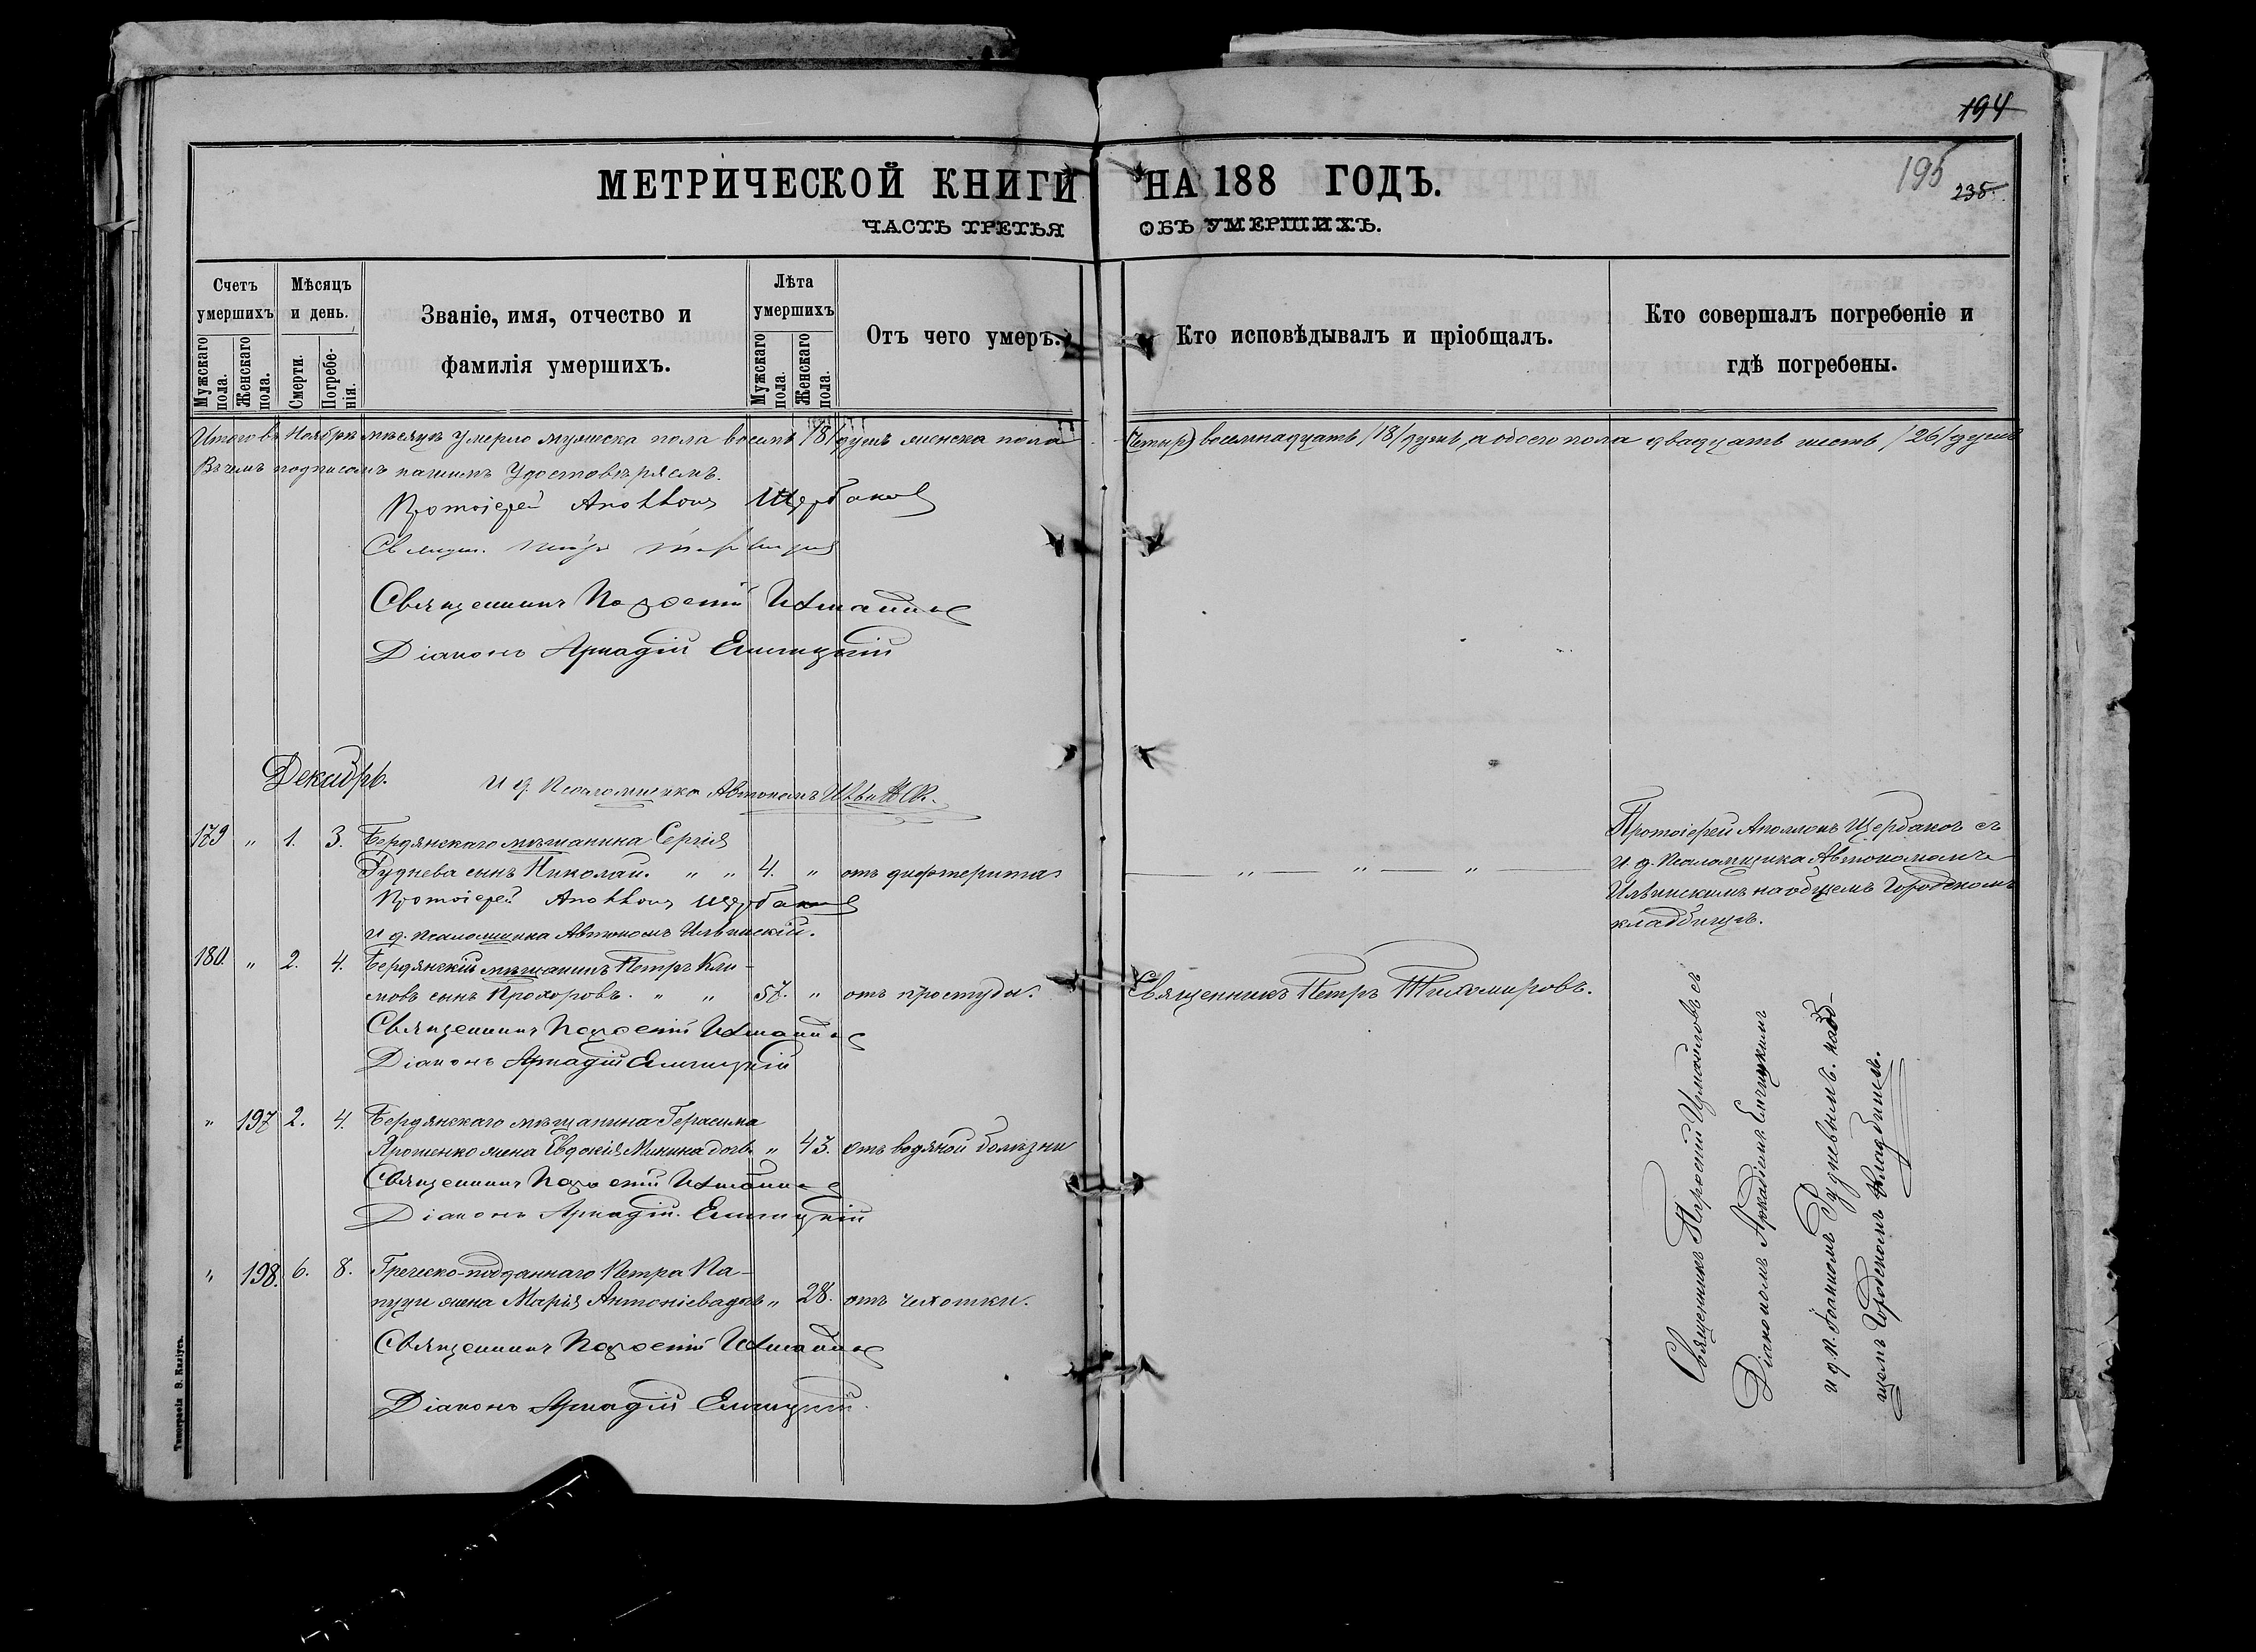 194
195
235.
МЕТРИЧЕСКОЙ КНИГИ НА 188 ГОДЪ.
ЧАСТЬ ТРЕТЬЯ ОБЪ УМЕРШИХЪ.
Счетъ умершихъ
Мужскаго пола.
Женскаго пола.
Мѣсяцъ и день.
Смерти.
Погребенія.
Званіе, имя, отчество и
фамилія умершихъ.
Лѣта умершихъ
Мужскаго пола.
Женскаго пола.
Отъ чего умеръ.
Кто исповѣдывалъ и пріобщалъ.
Кто совершалъ погребеніе и
гдѣ погребены.
Итого въ Ноябрѣ мѣсяцѣ умерло мужеска пола восемь /8/ душъ женска пола восемнадцать /18/ душъ, а обоего пола двадцать шесть /26/ душъ
Въ чемъ подписомъ нашимъ удостовѣряемъ.
Протоіерей Аполлонъ Щербаковъ
Священникъ
Діаконъ Аркадій
Декабрь.
И. д. Псаломщика Автономъ
179 " 1. 3. Бердянскаго мѣщанина Сергія
Руднева сынъ Николай. " " 4. " отъ дифтерита
" " "
Протоіерей Аполлонъ Щербаковъ
и. д. псаломщика Автономъ Ильинскій.
Протоіерей Аполлонъ Щербаковъ съ
и. д. псаломщика Автономомъ
Ильинскимъ на общемъ Городскомъ
кладбищѣ.
180. " 2. 4. Бердянскій мѣщанинъ Петръ Кли-
мовъ сынъ Прохоровъ. " " 57. " отъ простуды. Священникъ Петръ Тихомировъ.
Священникъ
Діаконъ Аркадій
" 197 2. 4. Бердянскаго мѣщанина Герасима
Ярошенко жена Евдокія Минина дочь " 43. отъ водяной болѣзни
Священникъ
Діаконъ Аркадій
" 198. 6. 8. Греческо-подданнаго Петра Па-
жена Марія Антоніева дочь " 28. отъ чахотки.
Священникъ
Діаконъ Аркадій
Священникъ съ
Діакономъ Аркадіемъ
и д. п. Іоанномъ Рудневымъ. на об-
щемъ Городскомъ Кладбищѣ.
Типографія Э. Килиусъ.